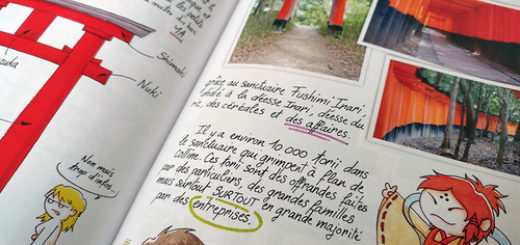 et les petits
1A
Shimaki
Nuki
Non mais
trop d'infos...
grâce au sanctuaire Fushimi Inari,
dédié à la déesse Inari, déesse du
riz, des céréales et des affaires.
Il y a environ 10 000 torii dans
le sanctuaire qui grimpent à flan de
colline. Ces torii sont des offrandes faites
par des particuliers, des grandes familles
mais surtout SURTOUT en grande majorité
par des entreprises.